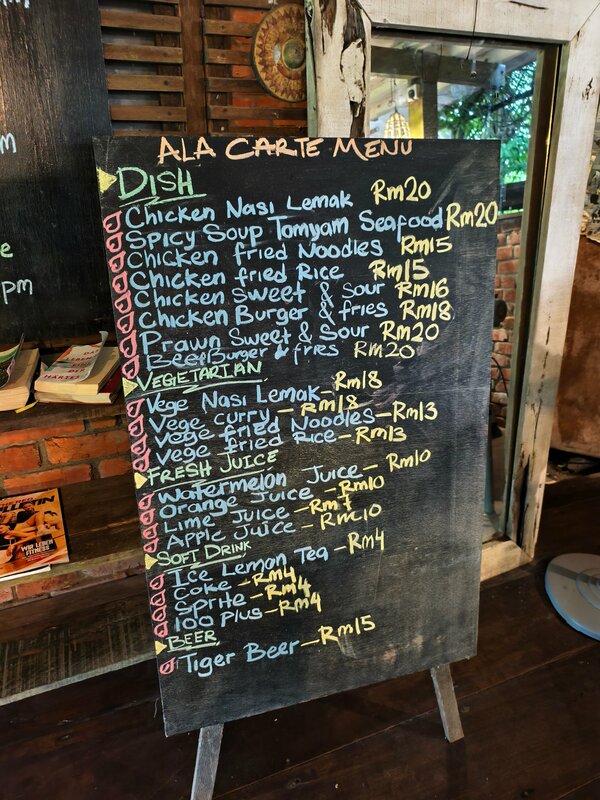 ALA CARTE MENU
DISH
Chicken Nasi Lemak Rm20
Spicy Soup Tomyam Seafood Rm20
Chicken fried Noodles Rm15
Chicken fried Rice Rm15
Chicken Sweet & Sour Rm16
Chicken Burger & fries Rm18
Prawn Sweet & Sour Rm20
Beef Burger & fries Rm20
VEGETARIAN
Vege Nasi Lemak - Rm18
Vege curry - Rm18
Vege fried Noodles - Rm13
Vege fried Rice - Rm13
FRESH JUICE
Watermelon Juice - Rm10
Orange Juice - Rm10
Lime Juice - Rm7
Apple Juice - Rm10
SOFT DRINK
Ice Lemon Tea - Rm4
Coke - Rm4
Sprite - Rm4
100 Plus - Rm4
BEER
Tiger Beer - Rm15
pm
WIR LEBEN
FITNESS